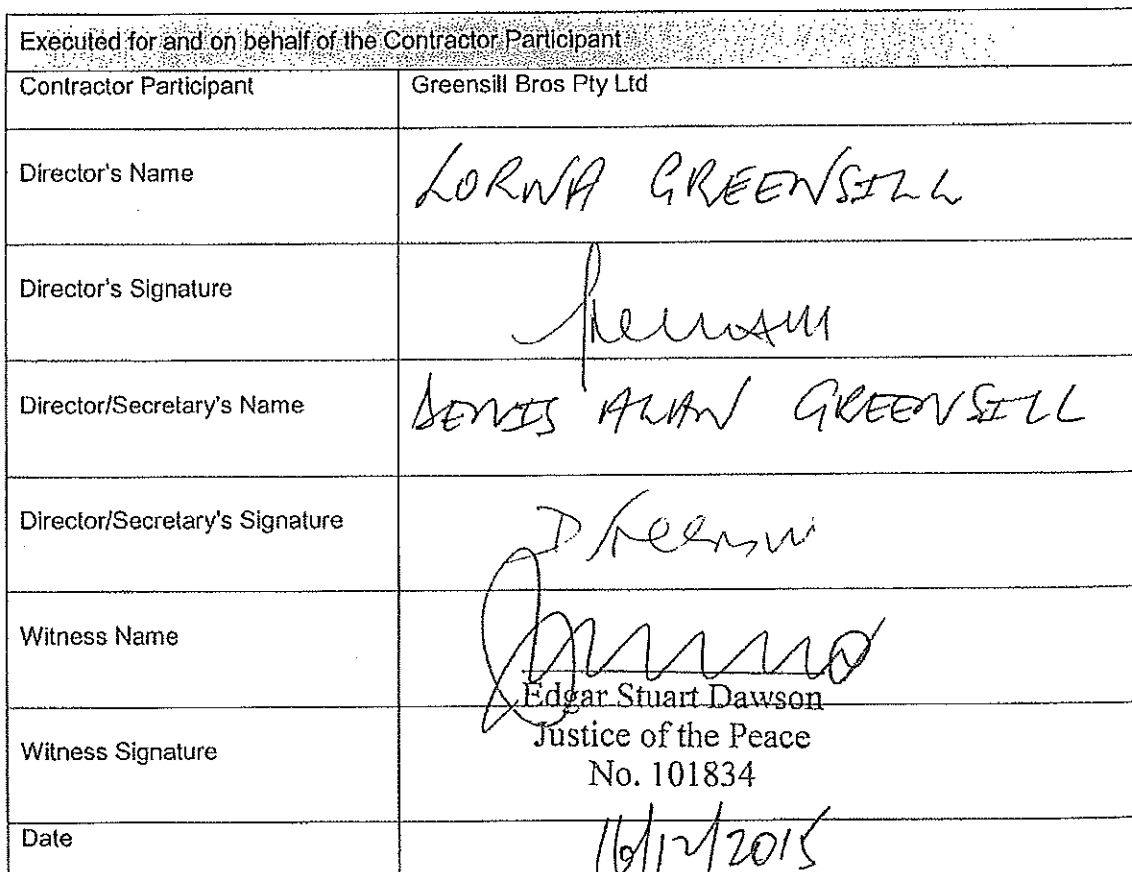 Executed for and on behalf of the Contractor Participant
Contractor Participant Greensill Bros Pty Ltd
Director's Name LORNA GREENSILL
Director's Signature
Director/Secretary's Name DENIS ALAN GREENSILL
Director/Secretary's Signature
Witness Name
Edgar Stuart Dawson
Witness Signature Justice of the Peace
No. 101834
Date 16/12/2015